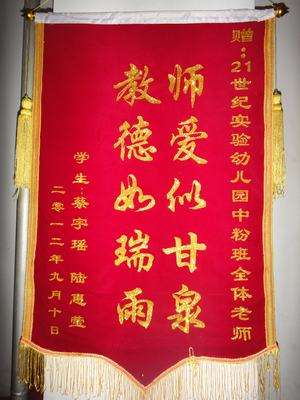 赠：21世纪实验幼儿园中粉班全体老师
师爱似甘泉
教德如瑞雨
学生：蔡宇瑶 陆惠莹
二零一二年九月十日